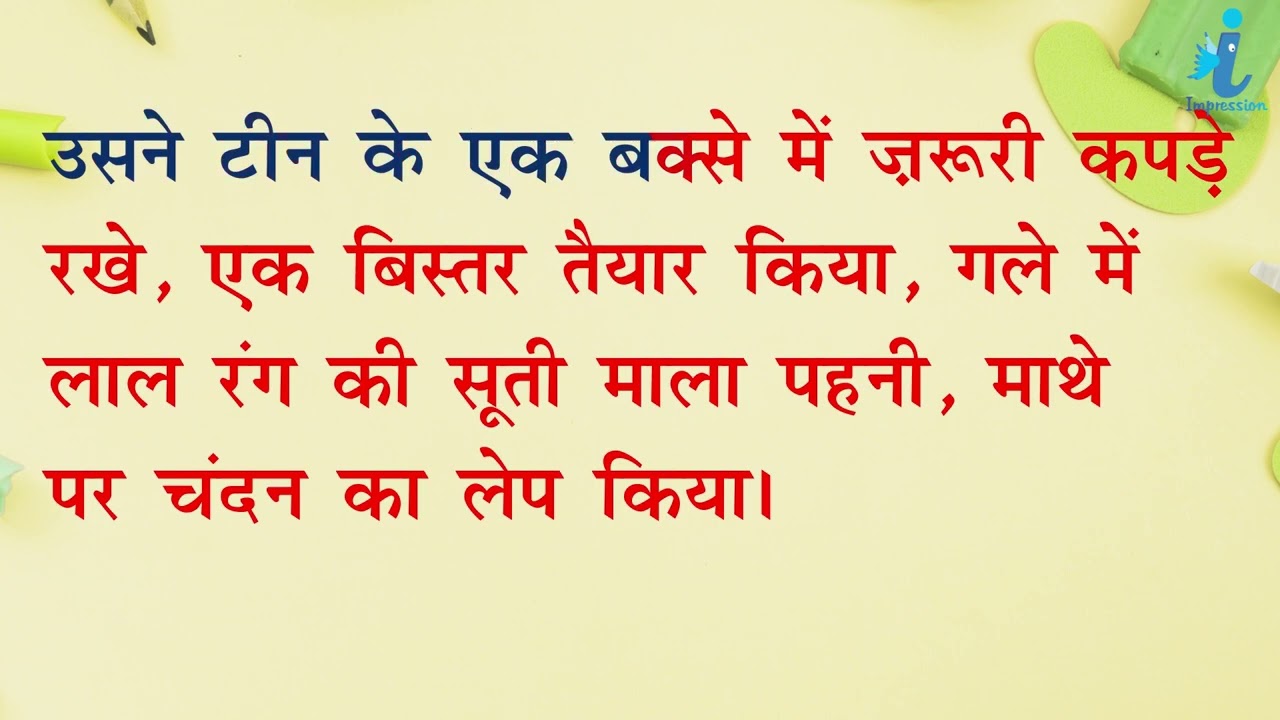 Impression
उसने टीन के एक बक्से में ज़रूरी कपड़े
रखे, एक बिस्तर तैयार किया, गले में
लाल रंग की सूती माला पहनी, माथे
पर चंदन का लेप किया।